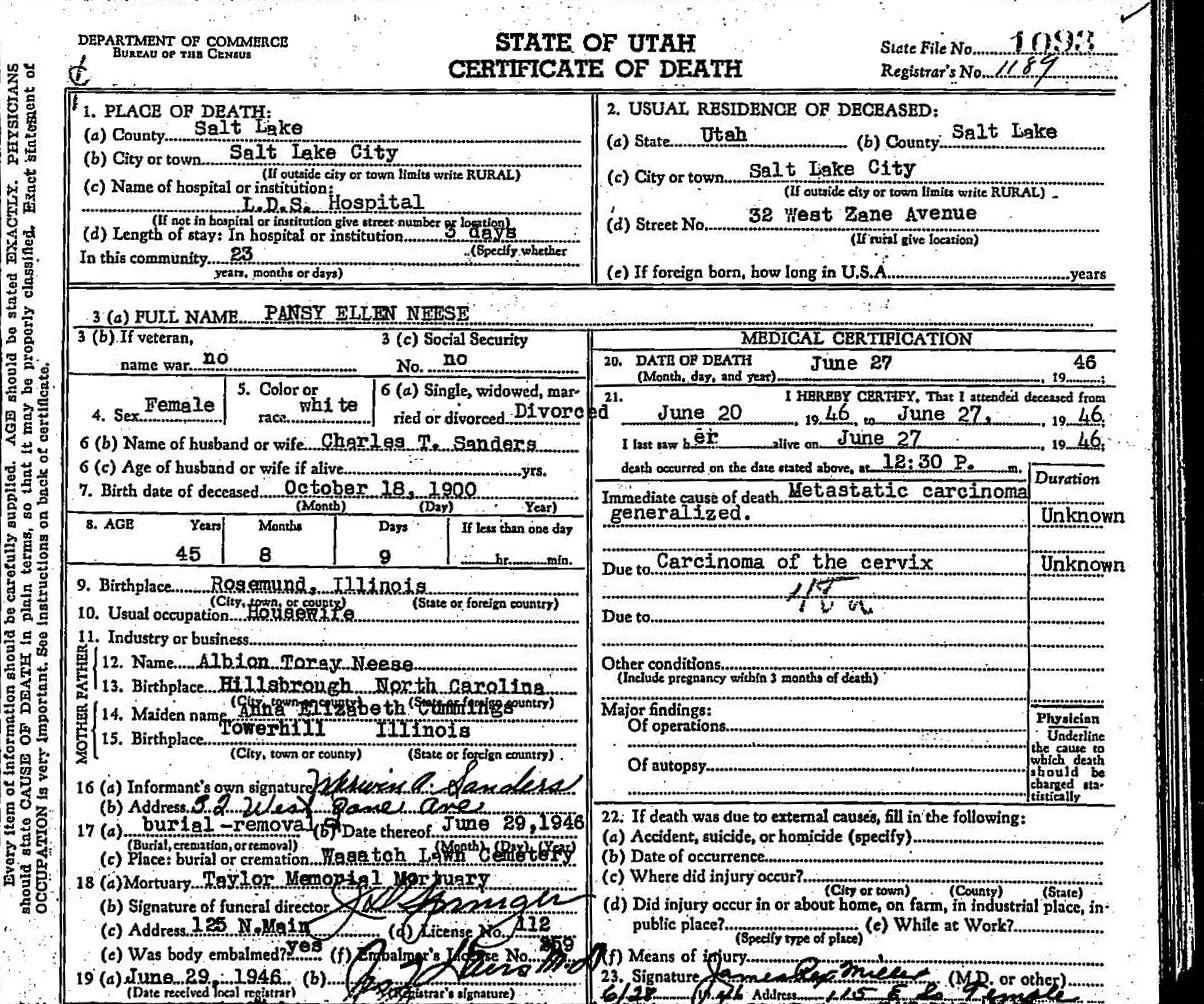 DEPARTMENT OF COMMERCE
BUREAU OF THE CENSUS
STATE OF UTAH
CERTIFICATE OF DEATH
State File No. 1093
Registrar's No. 1189
Every item of information should be carefully supplied. AGE should be stated EXACTLY. PHYSICIANS
should state CAUSE OF DEATH in plain terms, so that it may be properly classified. Exact statement of
OCCUPATION is very important. See instructions on back of certificate.
1. PLACE OF DEATH:
(a) County Salt Lake
(b) City or town Salt Lake City
(If outside city or town limits write RURAL)
(c) Name of hospital or institution:
L.D.S. Hospital
(If not in hospital or institution give street number or location)
(d) Length of stay: In hospital or institution 3 days
(Specify whether
In this community 23
years, months or days)
2. USUAL RESIDENCE OF DECEASED:
(a) State Utah (b) County Salt Lake
(c) City or town Salt Lake City
(If outside city or town limits write RURAL)
(d) Street No. 32 West Zane Avenue
(If rural give location)
(e) If foreign born, how long in U.S.A. years
3 (a) FULL NAME PANSY ELLEN NEESE
3 (b) If veteran, 3 (c) Social Security
name war no No. no
4. Sex Female 5. Color or race white 6 (a) Single, widowed, mar-
ried or divorced Divorced
6 (b) Name of husband or wife Charles T. Sanders
6 (c) Age of husband or wife if alive yrs.
7. Birth date of deceased October 18, 1900
(Month) (Day) Year)
8. AGE Years Months Days If less than one day
45 8 9 hr. min.
9. Birthplace Rosemund, Illinois
(City, town, or county) (State or foreign country)
10. Usual occupation Housewife
11. Industry or business
FATHER
12. Name Albion Toray Neese
13. Birthplace Hillsbrough North Carolina
(City, town or county) (State or foreign country)
MOTHER
14. Maiden name Anna Elizabeth Cummings
15. Birthplace Towerhill Illinois
(City, town or county) (State or foreign country)
16 (a) Informant's own signature Merwin A. Sanders
(b) Address 32 West Zane Ave
17 (a) burial-removal (b) Date thereof June 29, 1946
(Burial, cremation, or removal) (Month) (Day) (Year)
(c) Place: burial or cremation Wasatch Lawn Cemetery
18 (a) Mortuary Taylor Memorial Mortuary
(b) Signature of funeral director
(c) Address 125 N.Main (d) License No. 112
(e) Was body embalmed? yes (f) Embalmer's License No. 259
19 (a) June 29, 1946 (b)
(Date received local registrar) (Registrar's signature)
MEDICAL CERTIFICATION
20. DATE OF DEATH June 27 46
(Month, day, and year) 19
21. I HEREBY CERTIFY, That I attended deceased from
June 20 1946, to June 27, 1946.
I last saw her alive on June 27 1946.
death occurred on the date stated above, at 12:30 P. m.
Duration
Immediate cause of death Metastatic carcinoma
generalized. Unknown
Due to Carcinoma of the cervix Unknown
Due to
Other conditions
(Include pregnancy within 3 months of death)
Major findings:
Of operations
Of autopsy
Physician
Underline
the cause to
which death
should be
charged sta-
tistically
22. If death was due to external causes, fill in the following:
(a) Accident, suicide, or homicide (specify)
(b) Date of occurrence
(c) Where did injury occur?
(City or town) (County) (State)
(d) Did injury occur in or about home, on farm, in industrial place, in
public place? (e) While at Work?
(Specify type of place)
(f) Means of injury
23. Signature James Rex Miller (M.D. or other)
6/28 1946 Address 115 E So Temple